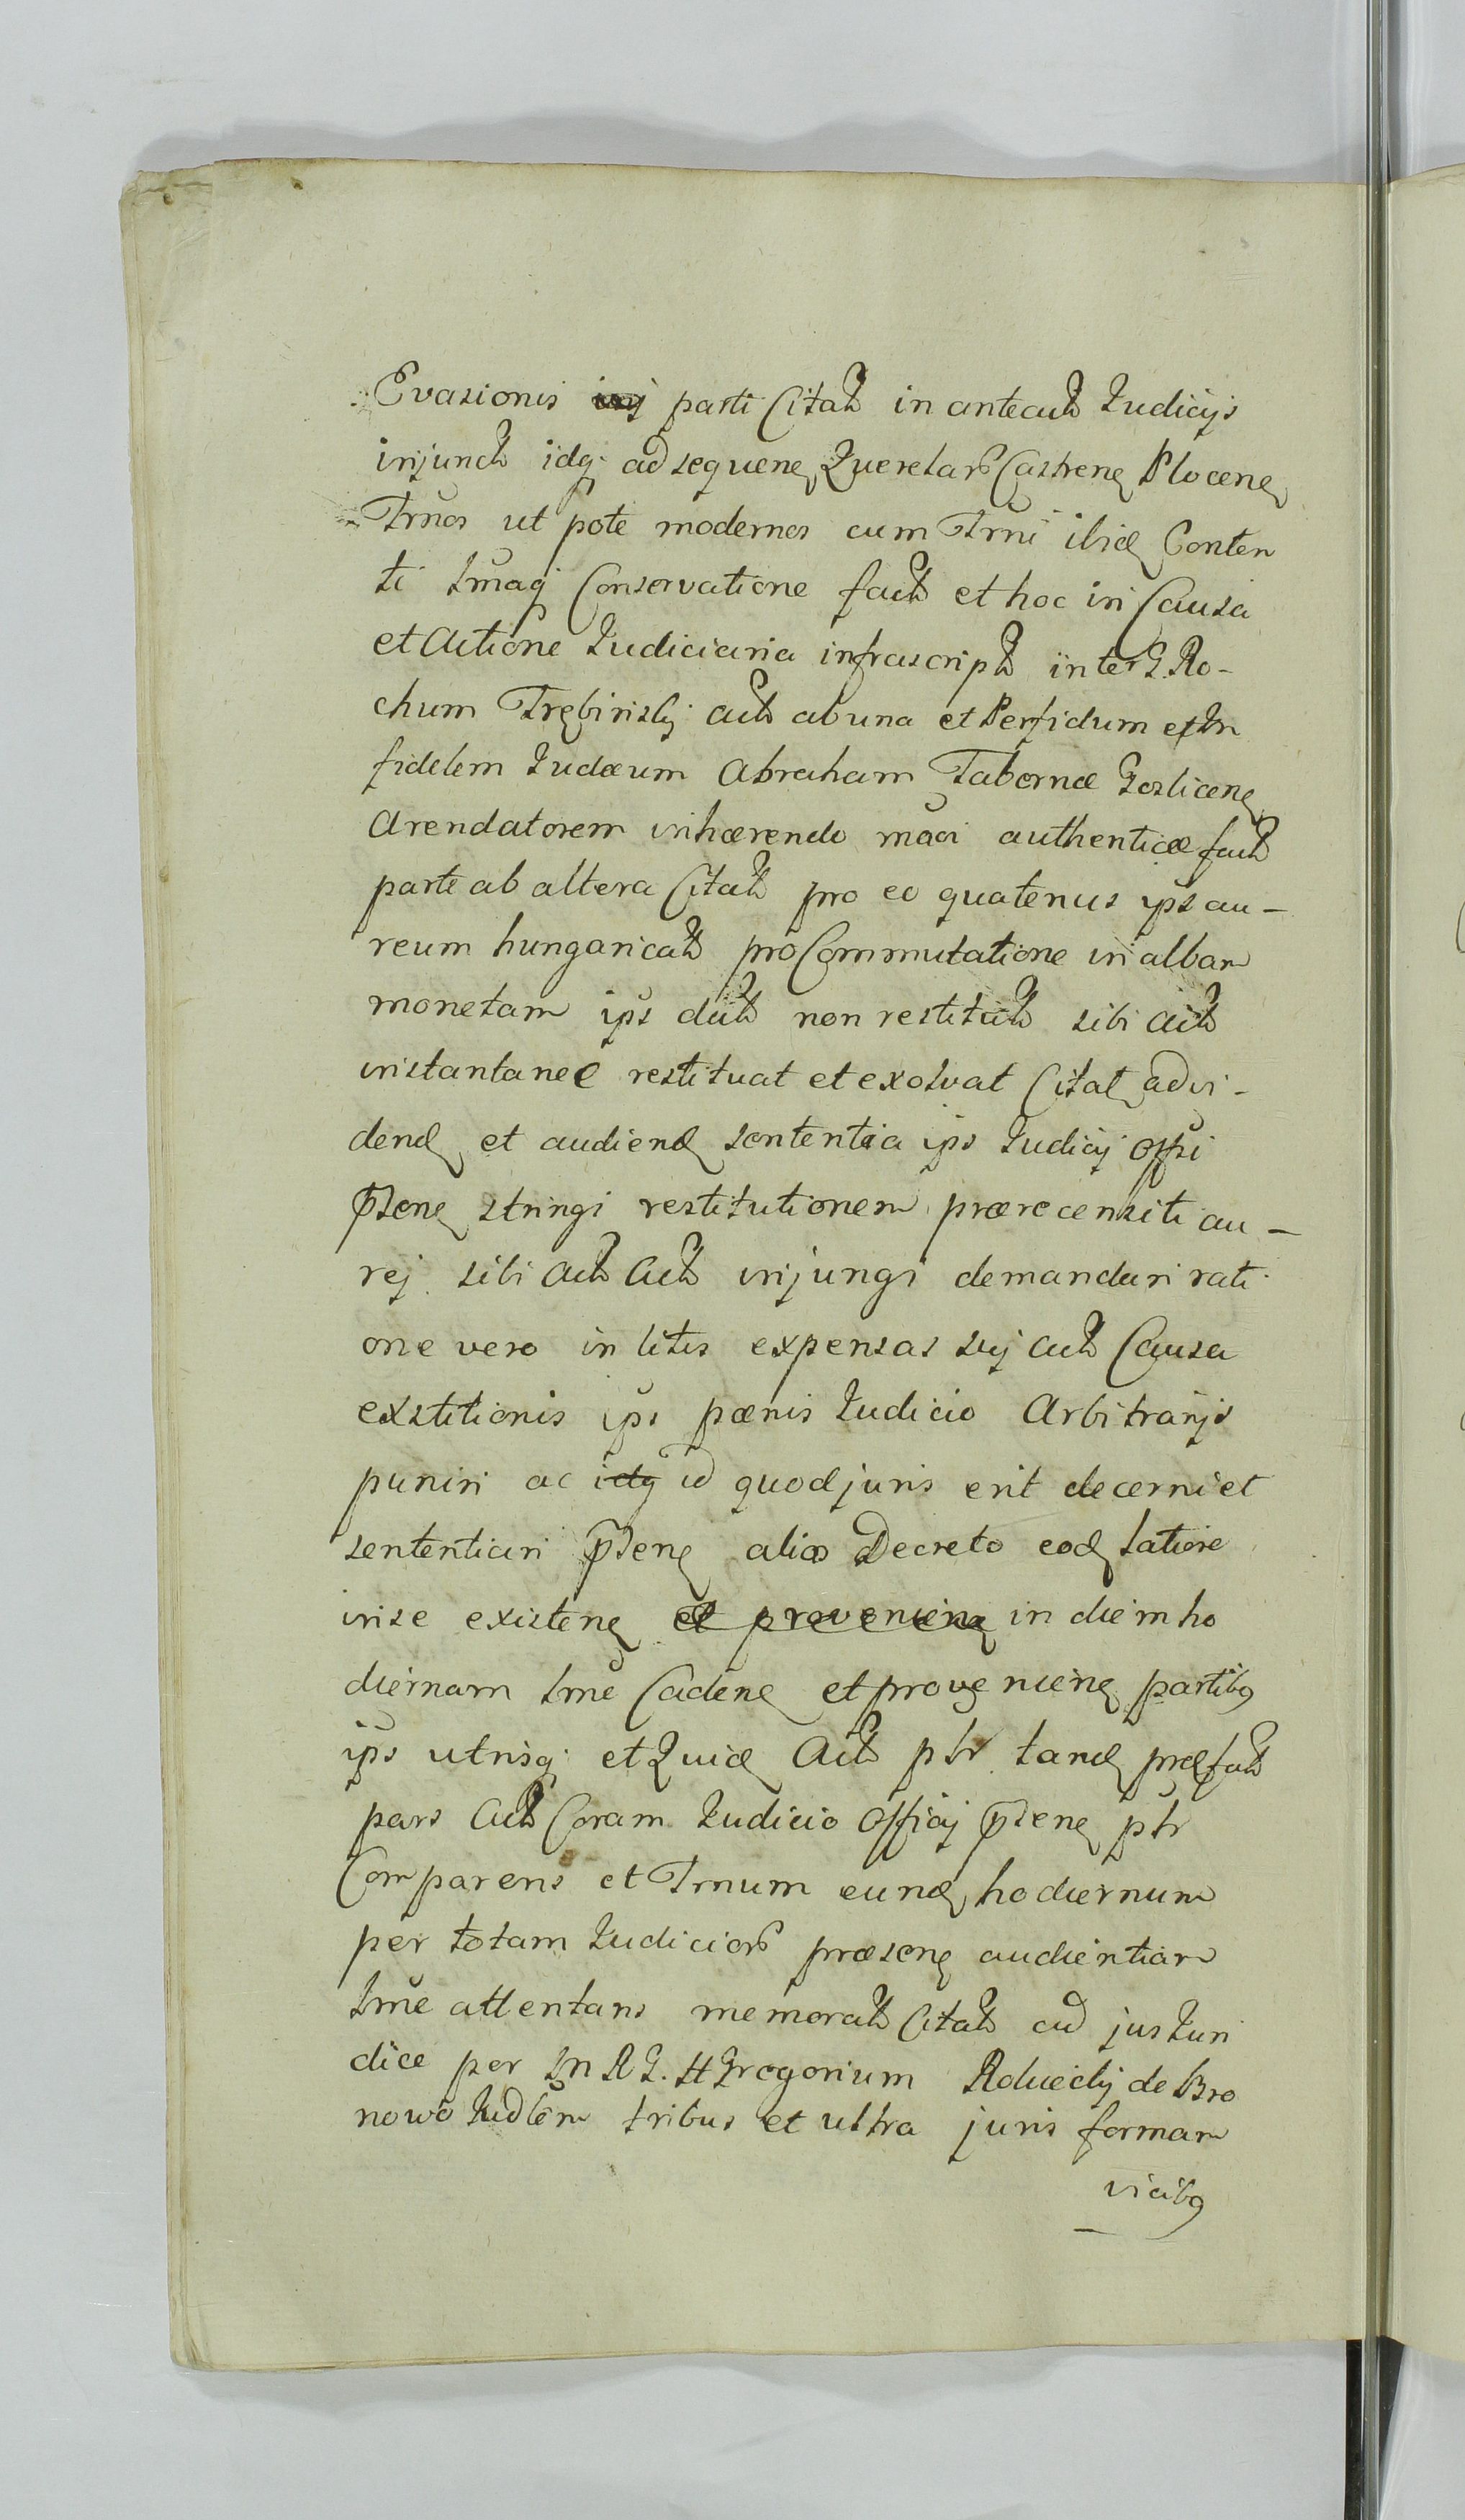 Evasionis parti Citatt in anteactt Judicijs
injunctt idq; ad sequene Querelar Castrene Plocene
Trnos ut pote modernos cum Trni ibid Conten
ti Conservatione factt et hoc in Causa
et Actione Judiciaria infrascriptt inter G. Ro-
chum Trębinsky Actt ab una et Perfidum et In
fidelem Judæum Abraham Tabernæ Goslicene
Arendatorem inhærendo authenticæ factt
parte ab altera Citatt pro eo quatenus ips au-
reum hungaricatt pro Commutatione in albam
monetam ips datt non restitutt sibi Actt
instantanee restituat et exolvat Citat ad vi-
dend et audiend sententia ips Judicij Offi
pstene stringi restitutionem prærecensiti au-
rej sibi Actt Actt injungi demandari rati
one vero in litis expensas sui Actt Causa
exstitionis ips pœnis Judicio Arbitrarijs
puniri ac idq id quod juris erit decerni et
sententiari pstene alias Decreto eod latiore
in se existene et proveniene in diem ho
diernam tme Cadene et proveniene partibq
ips utrisq; et Quid Actt ptr tand præfatt
pars Actt Coram Judicio Officij pstene ptr
Comparens et Trnum eund hodiernum
per totam Judicior præsene audientiam
tme attentans memoratt Citatt ad jus Juri
dice per Gregorium de Bro
nowo Judlem tribus et ultra juris formam
vicibq